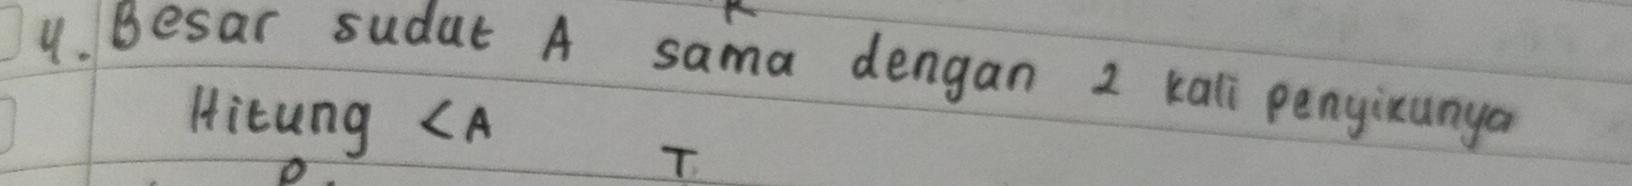 4. Besar sudut A sama dengan 2 kali penyikunya
Hitung <A
T